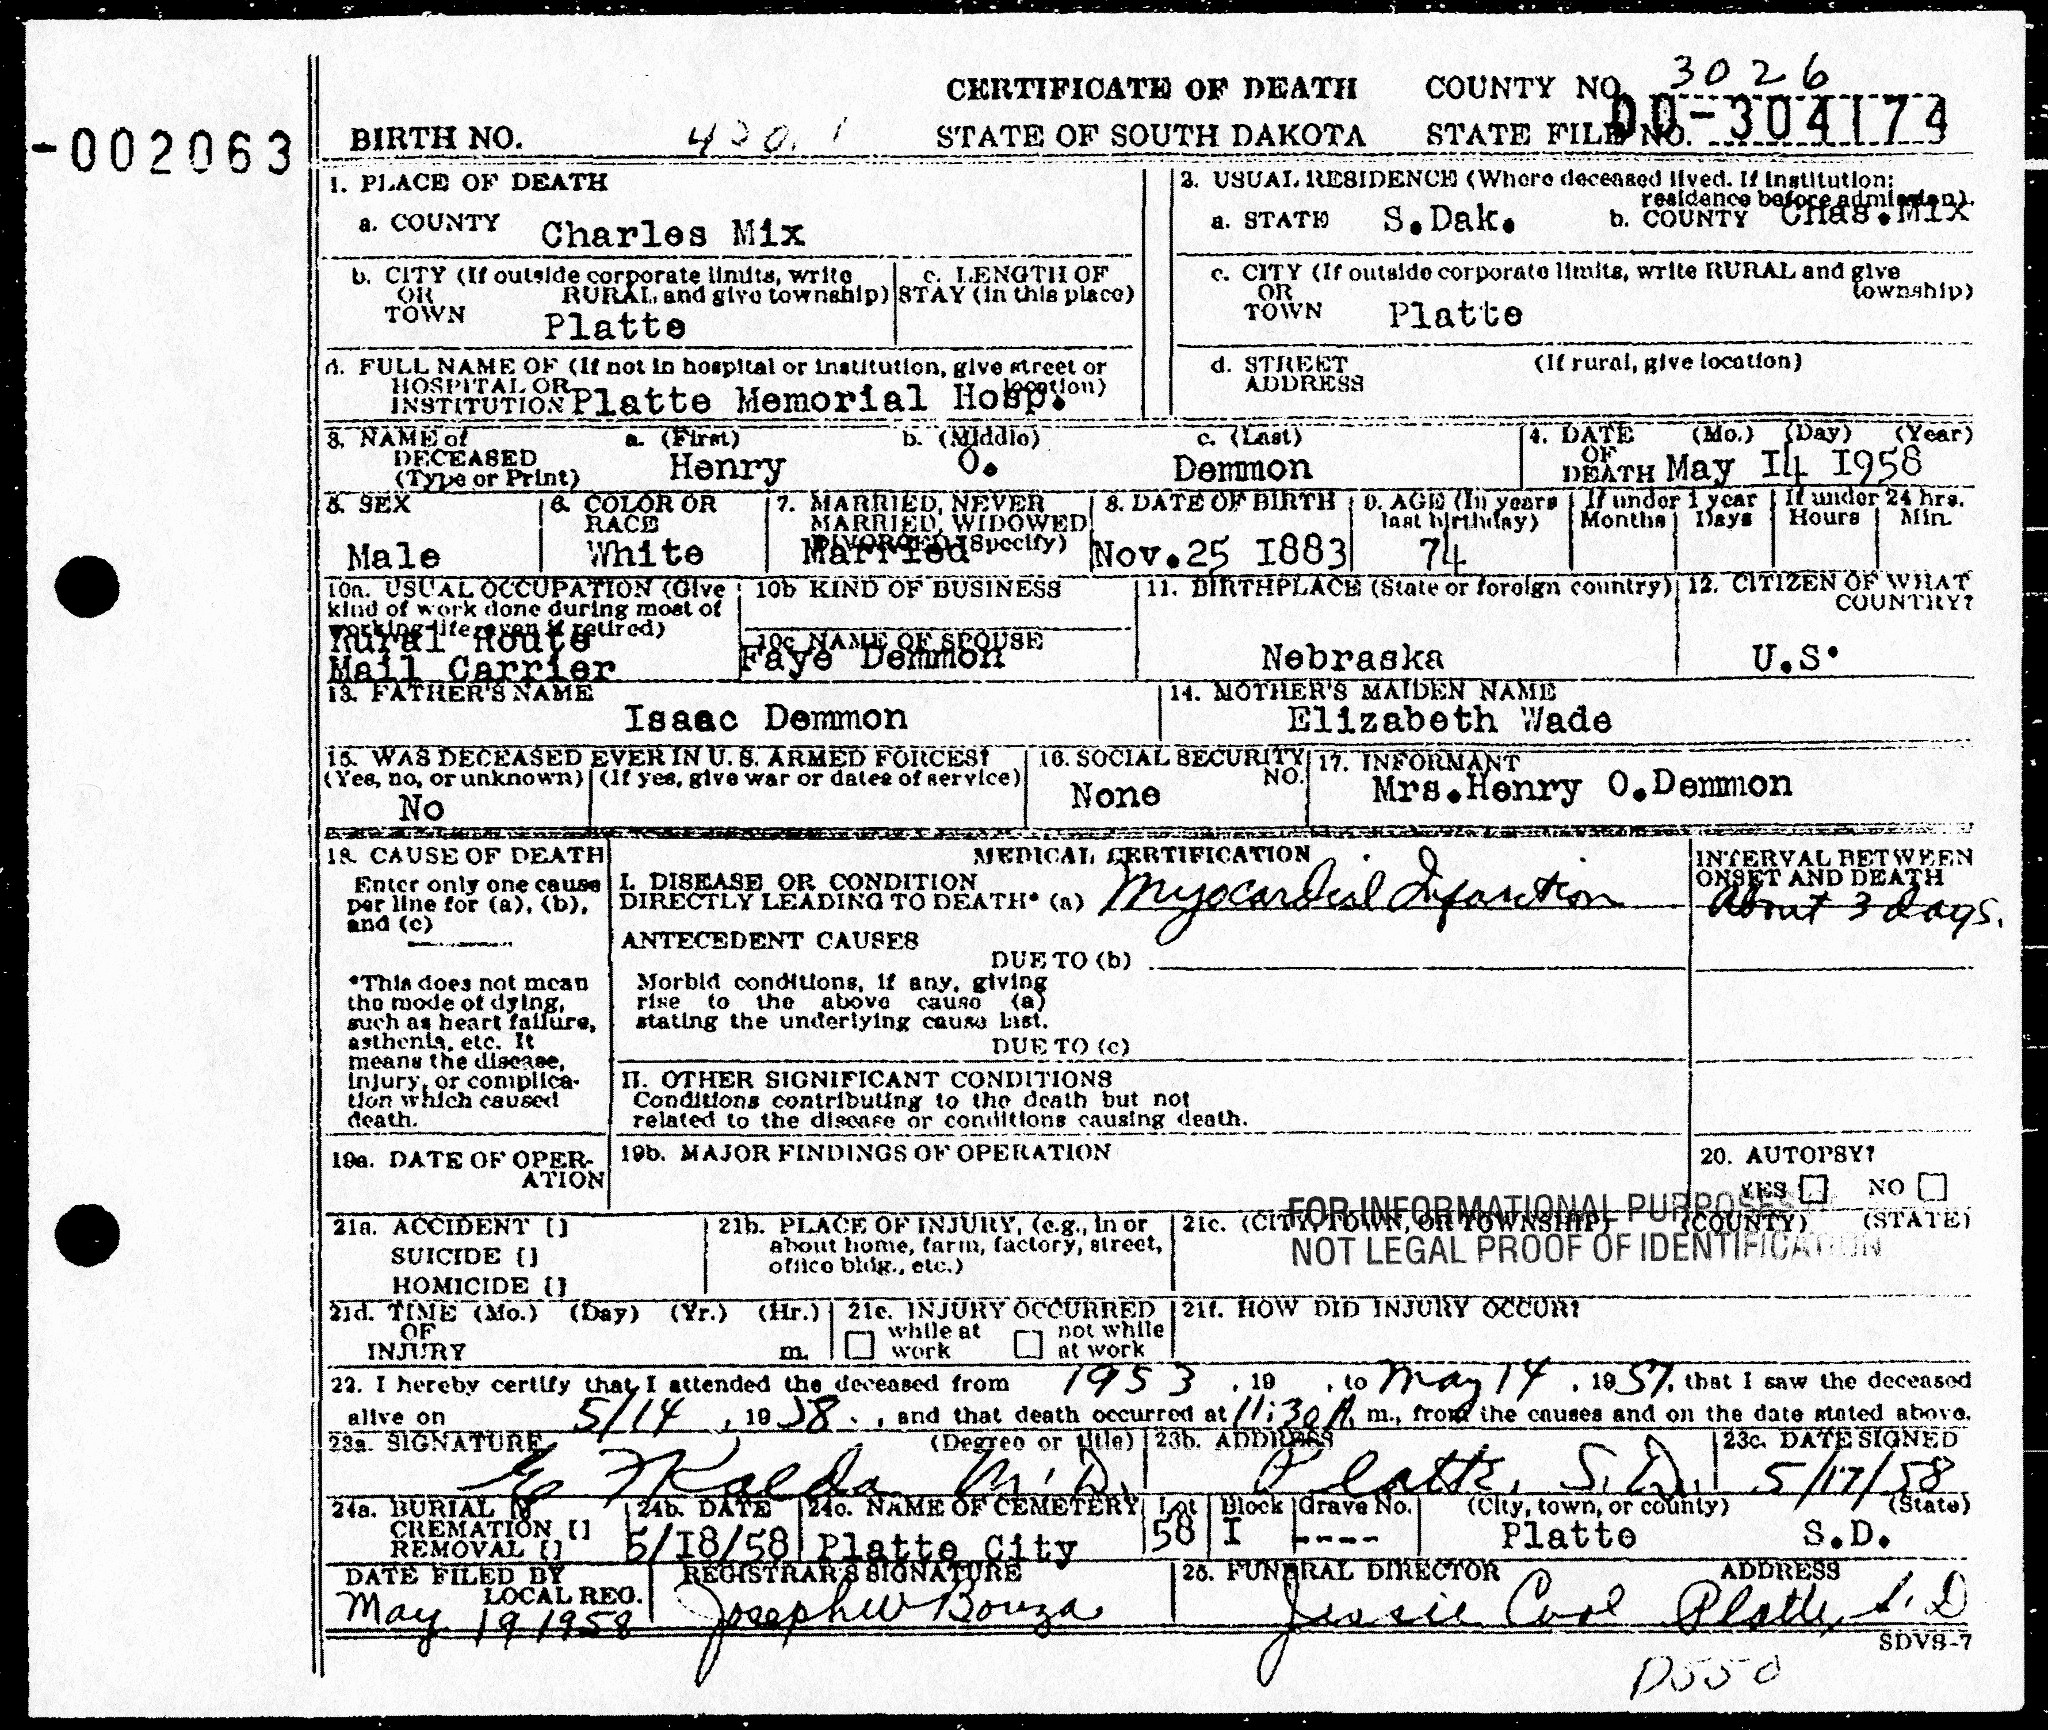 CERTIFICATE OF DEATH COUNTY NO. 3026
-002063 BIRTH NO. 420.1 STATE OF SOUTH DAKOTA STATE FILE NO. DO-304174
1. PLACE OF DEATH
a. COUNTY Charles Mix
2. USUAL RESIDENCE (Where deceased lived. If institution:
residence before admission).
a. STATE S.Dak. b. COUNTY Chas.Mix
b. CITY (If outside corporate limits, write
OR RURAL and give township)
TOWN Platte
c. LENGTH OF
STAY (in this place)
c. CITY (If outside corporate limits, write RURAL and give
OR township)
TOWN Platte
d. FULL NAME OF (If not in hospital or institution, give street or
HOSPITAL OR location)
INSTITUTION Platte Memorial Hosp.
d. STREET (If rural, give location)
ADDRESS
3. NAME of a. (First) b. (Middle) c. (Last)
DECEASED Henry O. Demmon
(Type or Print)
4. DATE (Mo.) (Day) (Year)
OF
DEATH May I4 I958
5. SEX
Male
6. COLOR OR
RACE
White
7. MARRIED, NEVER
MARRIED, WIDOWED
DIVORCED (Specify)
Married
8. DATE OF BIRTH
Nov.25 I883
9. AGE (In years
last birthday)
74
If under 1 year
Months Days
If under 24 hrs.
Hours Min.
10a. USUAL OCCUPATION (Give
kind of work done during most of
working life, even if retired)
Rural Route
Mail Carrier
10b KIND OF BUSINESS
10c NAME OF SPOUSE
Faye Demmon
11. BIRTHPLACE (State or foreign country)
Nebraska
12. CITIZEN OF WHAT
COUNTRY?
U.S.
13. FATHER'S NAME
Isaac Demmon
14. MOTHER'S MAIDEN NAME
Elizabeth Wade
15. WAS DECEASED EVER IN U. S. ARMED FORCES?
(Yes, no, or unknown) (If yes, give war or dates of service)
No
16. SOCIAL SECURITY
NO.
None
17. INFORMANT
Mrs.Henry O.Demmon
18. CAUSE OF DEATH
Enter only one cause
per line for (a), (b),
and (c)
*This does not mean
the mode of dying,
such as heart failure,
asthenia, etc. It
means the disease,
injury, or complica-
tion which caused
death.
MEDICAL CERTIFICATION
I. DISEASE OR CONDITION
DIRECTLY LEADING TO DEATH* (a) Myocardial Infarction
ANTECEDENT CAUSES
DUE TO (b)
Morbid conditions, if any, giving
rise to the above cause (a)
stating the underlying cause last.
DUE TO (c)
II. OTHER SIGNIFICANT CONDITIONS
Conditions contributing to the death but not
related to the disease or conditions causing death.
INTERVAL BETWEEN
ONSET AND DEATH
About 3 days.
19a. DATE OF OPER-
ATION
19b. MAJOR FINDINGS OF OPERATION
20. AUTOPSY?
YES NO
FOR INFORMATIONAL PURPOSES
NOT LEGAL PROOF OF IDENTIFICATION
21a. ACCIDENT []
SUICIDE []
HOMICIDE []
21b. PLACE OF INJURY, (e.g., in or
about home, farm, factory, street,
office bldg., etc.)
21c. (CITY, TOWN, OR TOWNSHIP) (COUNTY) (STATE)
21d. TIME (Mo.) (Day) (Yr.) (Hr.)
OF
INJURY m.
21e. INJURY OCCURRED
while at work
not while at work
21f. HOW DID INJURY OCCUR?
22. I hereby certify that I attended the deceased from 1953, 19 , to May 14, 1957, that I saw the deceased
alive on 5/14, 1958., and that death occurred at 11:30 A. m., from the causes and on the date stated above.
23a. SIGNATURE (Degree or title)
Kalda M.D.
23b. ADDRESS
Platte, S.D.
23c. DATE SIGNED
5/17/58
24a. BURIAL [X]
CREMATION []
REMOVAL []
24b. DATE
5/I8/58
24c. NAME OF CEMETERY
Platte City
Lot
58
Block
I
Grave No.
----
(City, town, or county) (State)
Platte S.D.
DATE FILED BY
LOCAL REG.
May 19 1958
REGISTRAR'S SIGNATURE
Joseph W Bouza
25. FUNERAL DIRECTOR ADDRESS
Jessie Cool Platte, S.D
SDVS-7
D550